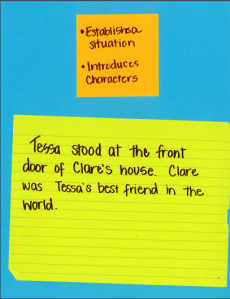 • Establishes a
situation
• Introduces
Characters
Tessa stood at the front
door of Clare's house. Clare
was Tessa's best friend in the
world.